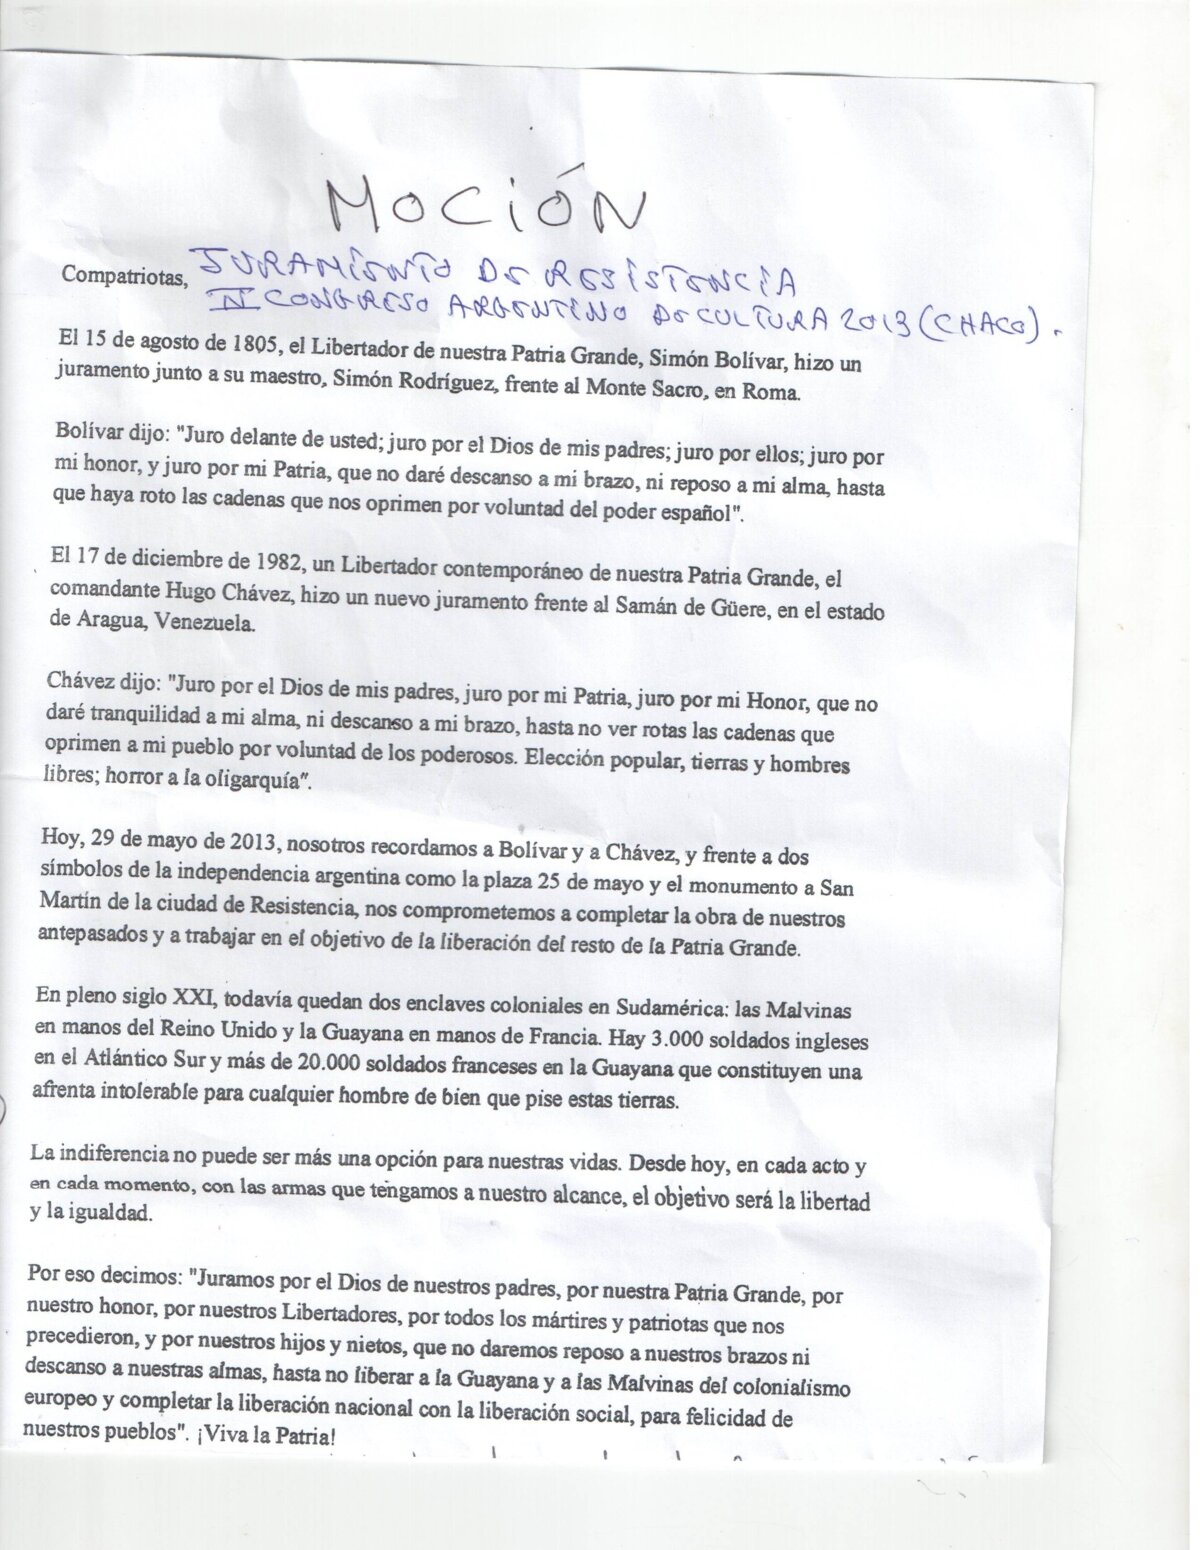 MOCIÓN
Compatriotas, JURAMIENTO DE RESISTENCIA
IV CONGRESO ARGENTINO DE CULTURA 2013 (CHACO).
El 15 de agosto de 1805, el Libertador de nuestra Patria Grande, Simón Bolívar, hizo un
juramento junto a su maestro, Simón Rodríguez, frente al Monte Sacro, en Roma.
Bolívar dijo: "Juro delante de usted; juro por el Dios de mis padres; juro por ellos; juro por
mi honor, y juro por mi Patria, que no daré descanso a mi brazo, ni reposo a mi alma, hasta
que haya roto las cadenas que nos oprimen por voluntad del poder español".
El 17 de diciembre de 1982, un Libertador contemporáneo de nuestra Patria Grande, el
comandante Hugo Chávez, hizo un nuevo juramento frente al Samán de Güere, en el estado
de Aragua, Venezuela.
Chávez dijo: "Juro por el Dios de mis padres, juro por mi Patria, juro por mi Honor, que no
daré tranquilidad a mi alma, ni descanso a mi brazo, hasta no ver rotas las cadenas que
oprimen a mi pueblo por voluntad de los poderosos. Elección popular, tierras y hombres
libres; horror a la oligarquía".
Hoy, 29 de mayo de 2013, nosotros recordamos a Bolívar y a Chávez, y frente a dos
símbolos de la independencia argentina como la plaza 25 de mayo y el monumento a San
Martín de la ciudad de Resistencia, nos comprometemos a completar la obra de nuestros
antepasados y a trabajar en el objetivo de la liberación del resto de la Patria Grande.
En pleno siglo XXI, todavía quedan dos enclaves coloniales en Sudamérica: las Malvinas
en manos del Reino Unido y la Guayana en manos de Francia. Hay 3.000 soldados ingleses
en el Atlántico Sur y más de 20.000 soldados franceses en la Guayana que constituyen una
afrenta intolerable para cualquier hombre de bien que pise estas tierras.
La indiferencia no puede ser más una opción para nuestras vidas. Desde hoy, en cada acto y
en cada momento, con las armas que tengamos a nuestro alcance, el objetivo será la libertad
y la igualdad.
Por eso decimos: "Juramos por el Dios de nuestros padres, por nuestra Patria Grande, por
nuestro honor, por nuestros Libertadores, por todos los mártires y patriotas que nos
precedieron, y por nuestros hijos y nietos, que no daremos reposo a nuestros brazos ni
descanso a nuestras almas, hasta no liberar a la Guayana y a las Malvinas del colonialismo
europeo y completar la liberación nacional con la liberación social, para felicidad de
nuestros pueblos". ¡Viva la Patria!